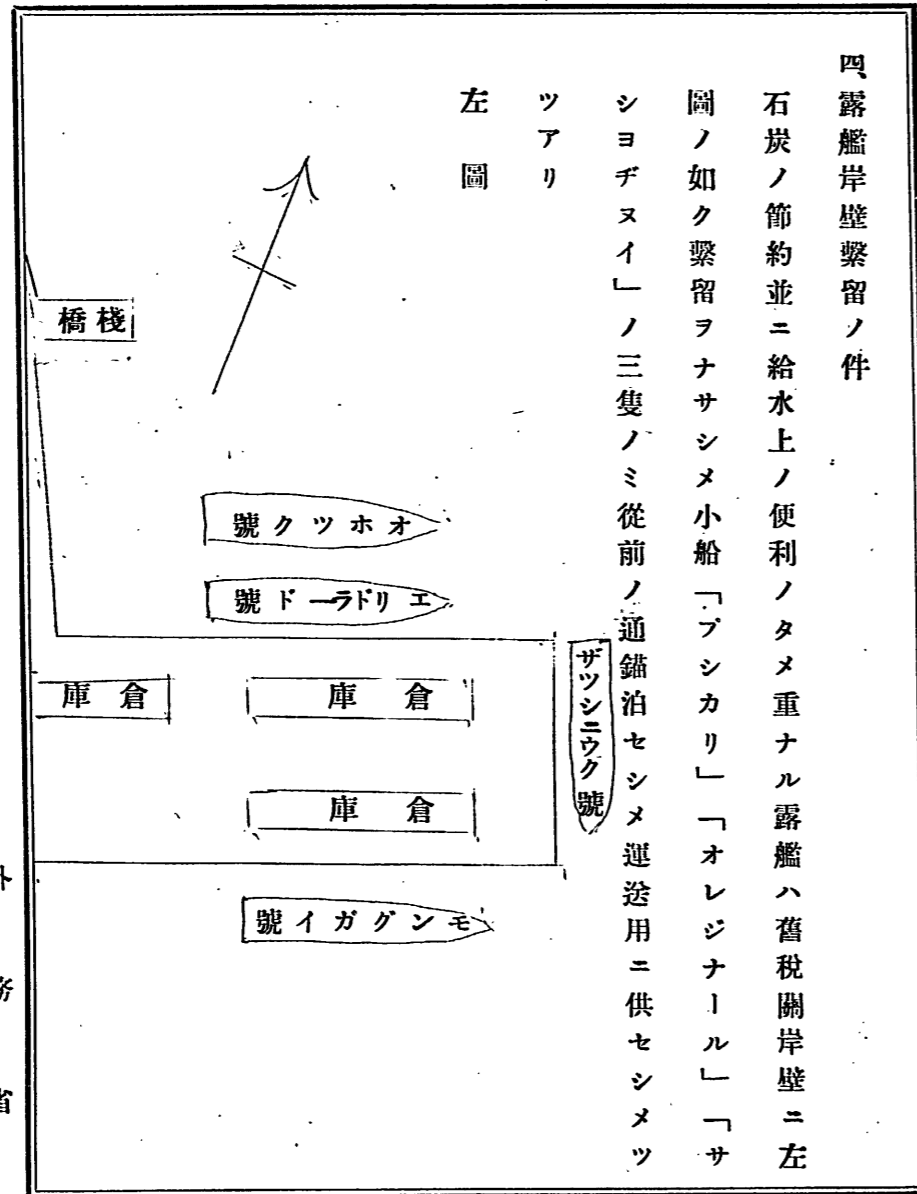 四、露艦岸壁繫留ノ件
石炭ノ節約並ニ給水上ノ便利ノタメ重ナル露艦ハ舊稅關岸壁ニ左
圖ノ如ク繫留ヲナサシメ小船「プシカリ」「オレジナール」「サ
シヨヂヌイ」ノ三隻ノミ從前ノ通錨泊セシメ運送用ニ供セシメツ
ツアリ
左圖
棧橋
オホツク號
エリドラード號
ザツシニウク號
倉庫
倉庫
倉庫
モングガイ號
外務省